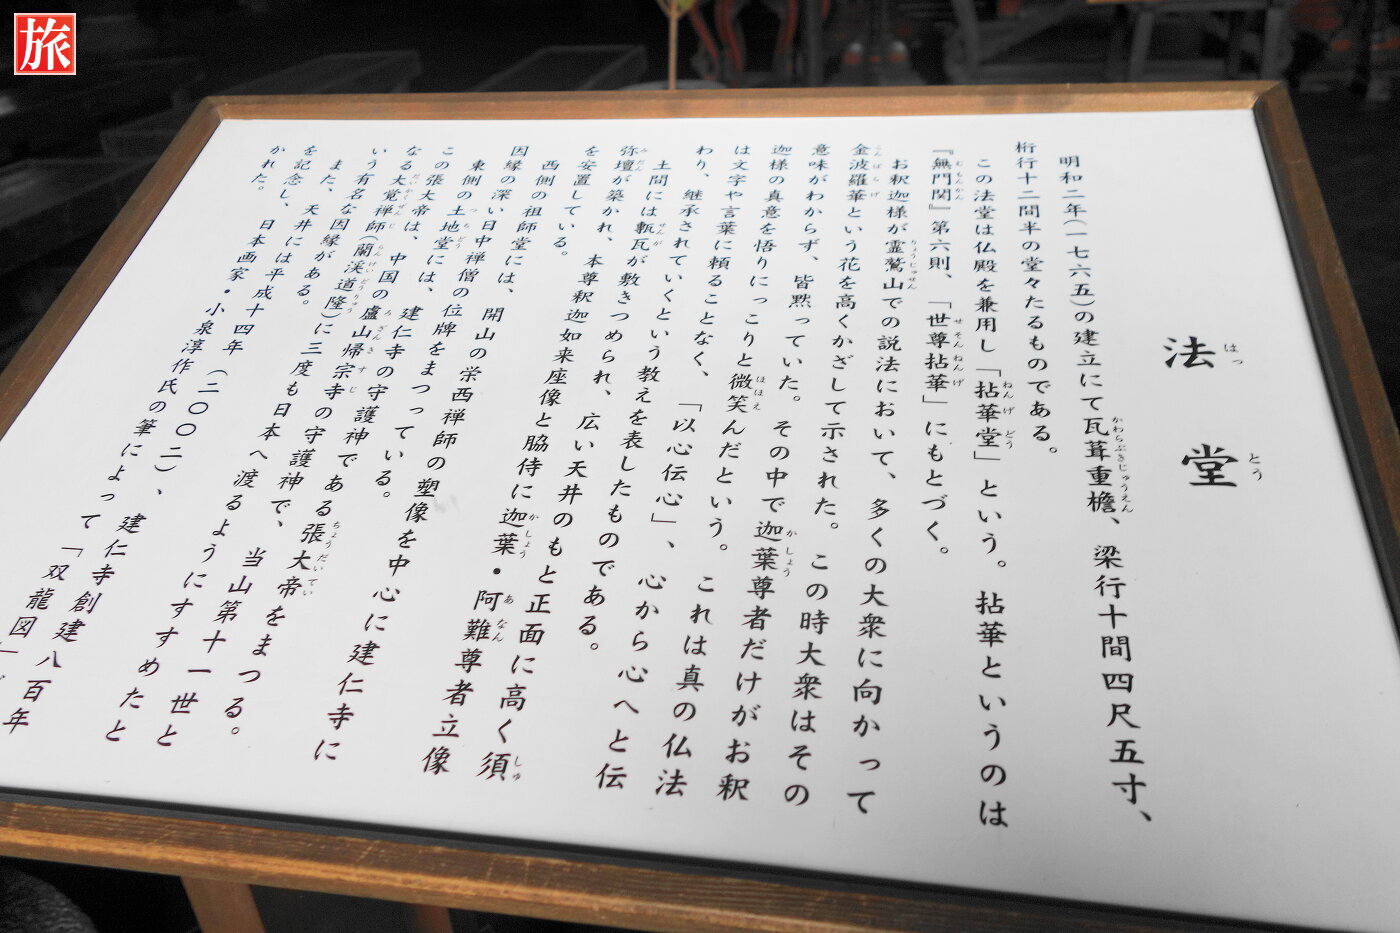 旅
法堂
はっ とう
明和二年(一七六五)の建立にて瓦葺重檐、梁行十間四尺五寸、
かわらぶきじゅうえん
桁行十二間半の堂々たるものである。
この法堂は仏殿を兼用し「拈華堂」という。拈華というのは
ねんげどう
『無門関』第六則、「世尊拈華」にもとづく。
むもんかん せそんねんげ
お釈迦様が霊鷲山での説法において、多くの大衆に向かって
りょうじゅせん
金波羅華という花を高くかざして示された。この時大衆はその
こんぱらげ
意味がわからず、皆黙っていた。その中で迦葉尊者だけがお釈
かしょう
迦様の真意を悟りにっこりと微笑んだという。これは真の仏法
ほほえ
は文字や言葉に頼ることなく、「以心伝心」、心から心へと伝
わり、継承されていくという教えを表したものである。
土間には甎瓦が敷きつめられ、広い天井のもと正面に高く須
せんが しゅ
弥壇が築かれ、本尊釈迦如来座像と脇侍に迦葉・阿難尊者立像
みだん かしょう あなん
を安置している。
西側の祖師堂には、開山の栄西禅師の塑像を中心に建仁寺に
因縁の深い日中禅僧の位牌をまつっている。
東側の土地堂には、建仁寺の守護神である張大帝をまつる。
つちどう ちょうだいてい
この張大帝は、中国の廬山帰宗寺の守護神で、当山第十一世と
ろざんきすじ
なる大覚禅師(蘭渓道隆)に三度も日本へ渡るようにすすめたと
だいかくぜんじ らんけいどうりゅう
いう有名な因縁がある。
また、天井には平成十四年(二〇〇二)、建仁寺創建八百年
を記念し、日本画家・小泉淳作氏の筆によって「双龍図」
かれた。